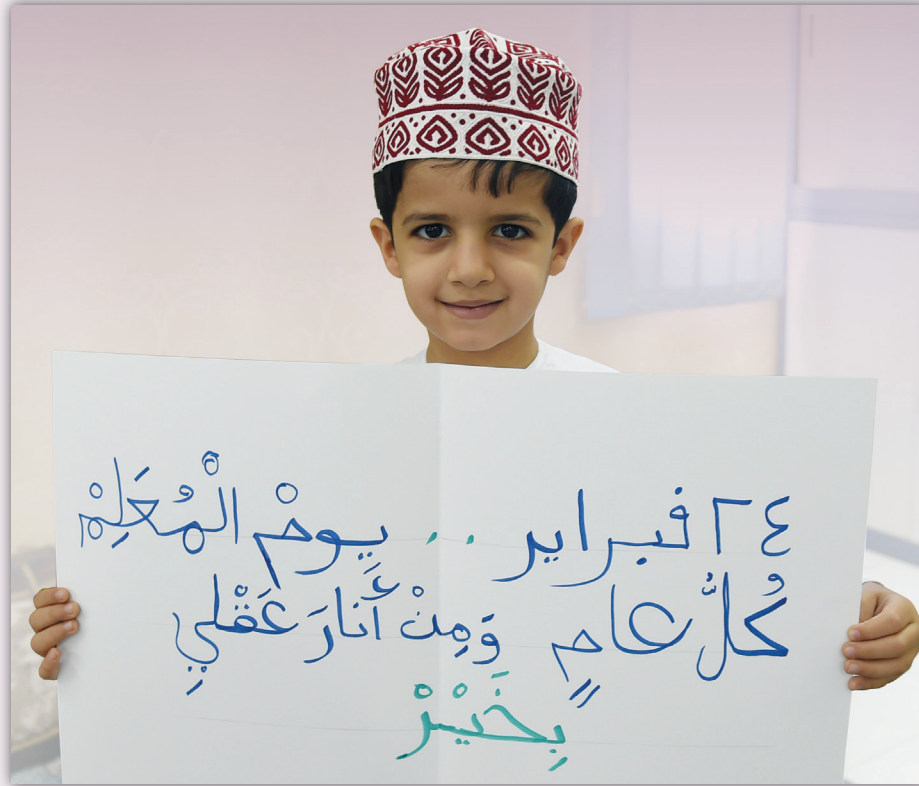 ٢٤ فبراير .. يومْ الْمُعَلِمْ
كُلُّ عامٍ وَمِنْ أَنارَ عَقْلي
بِخَيْرْ